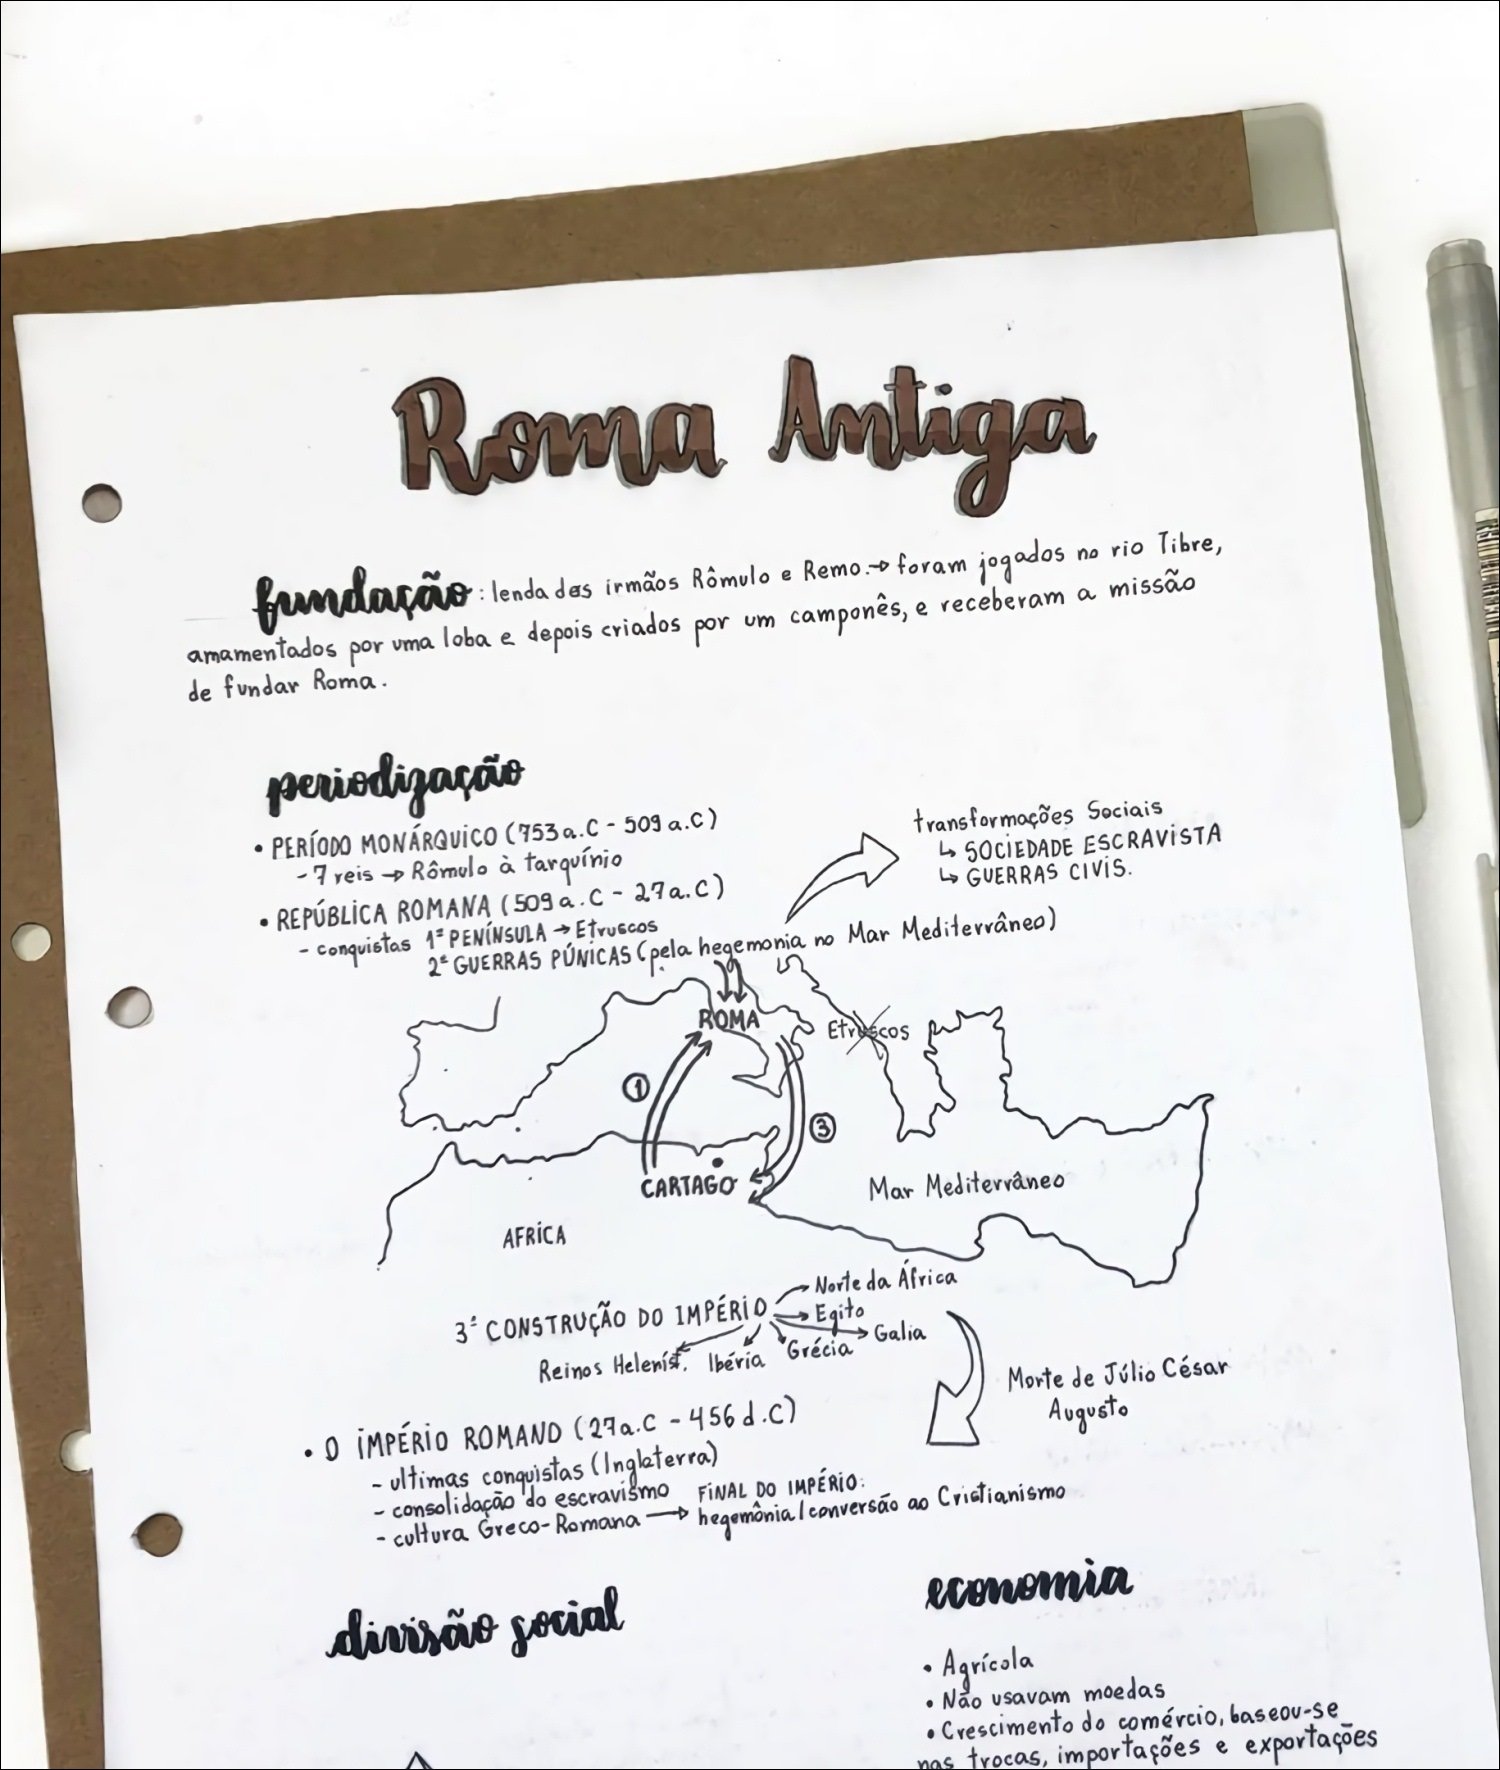 Roma Antiga
fundação: lenda dos irmãos Rômulo e Remo.→ foram jogados no rio Tibre,
amamentados por uma loba e depois criados por um camponês, e receberam a missão
de fundar Roma.
periodização
• PERÍODO MONÁRQUICO (753 a.C - 509 a.C)
- 7 reis → Rômulo à tarquínio
• REPÚBLICA ROMANA (509 a.C - 27 a.C)
- conquistas 1ª PENÍNSULA → Etruscos
2ª GUERRAS PÚNICAS (pela hegemonia no Mar Mediterrâneo)
transformações Sociais
↳ SOCIEDADE ESCRAVISTA
↳ GUERRAS CIVIS.
ROMA
Etruscos
1
3
CARTAGO
Mar Mediterrâneo
AFRICA
3ª CONSTRUÇÃO DO IMPÉRIO
Norte da África
Egito
Galia
Grécia
Ibéria
Reinos Heleníst.
Morte de Júlio César
Augusto
• O IMPÉRIO ROMANO (27 a.C - 456 d.C)
- ultimas conquistas (Inglaterra)
- consolidação do escravismo
- cultura Greco-Romana →
FINAL DO IMPÉRIO:
hegemônia/conversão ao Cristianismo
divisão social
economia
• Agrícola
• Não usavam moedas
• Crescimento do comércio, baseou-se
nas trocas, importações e exportações